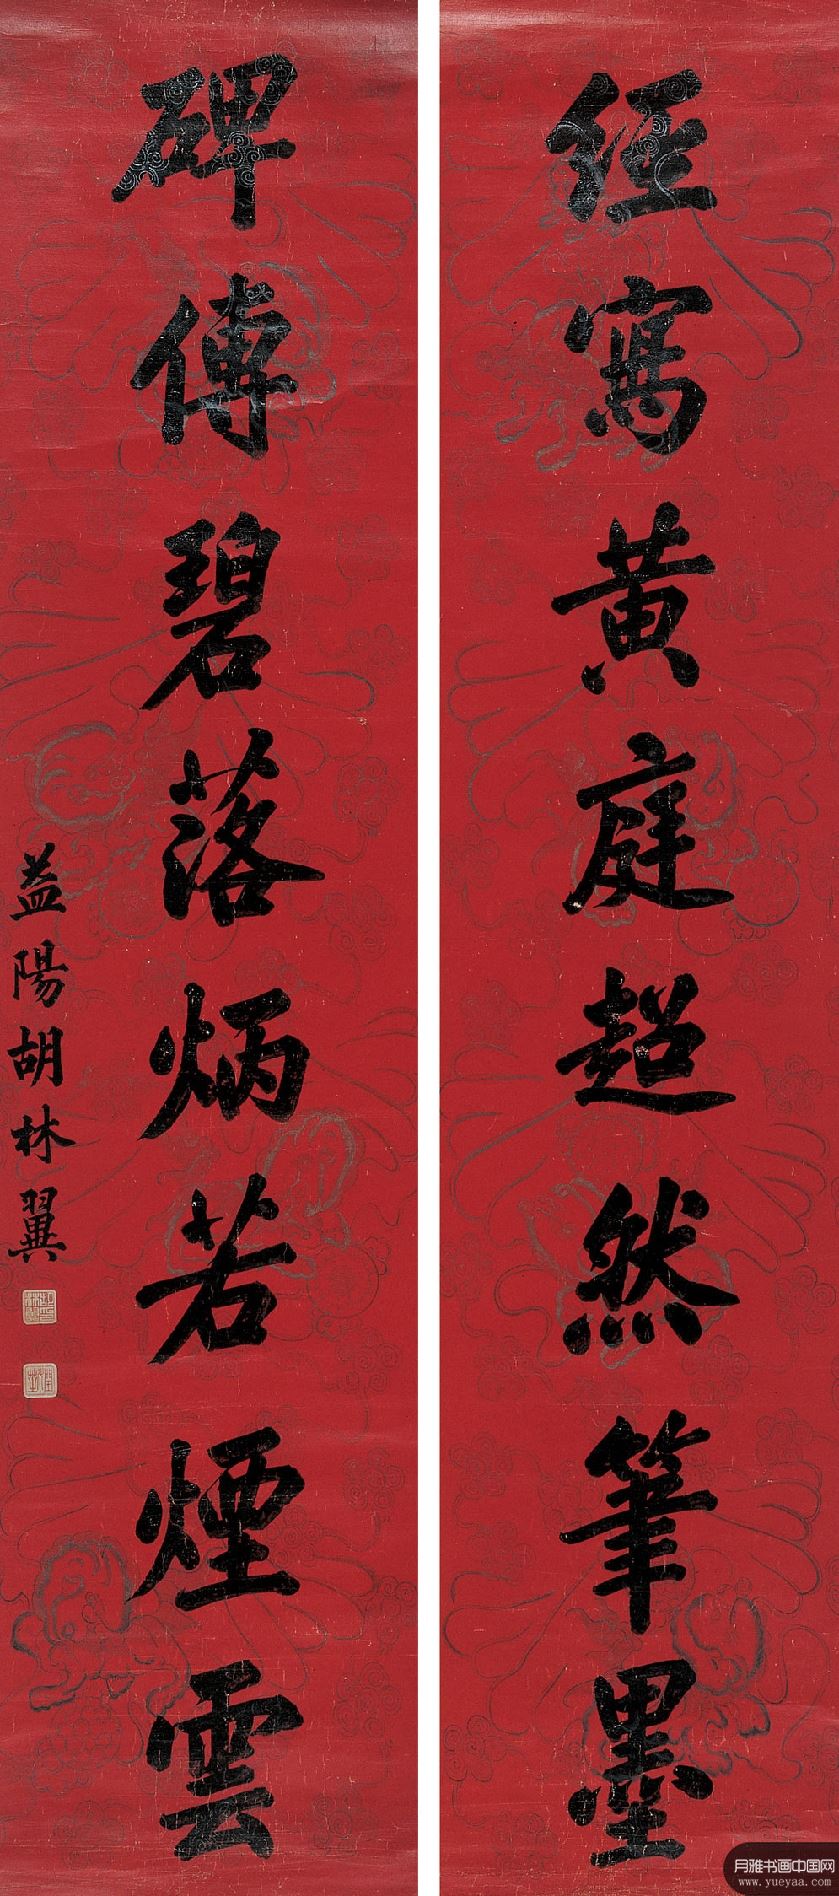 經寫黃庭超然筆墨
碑傳碧落炳若煙雲
益陽胡林翼
月雅书画中国网
www.yueyaa.com